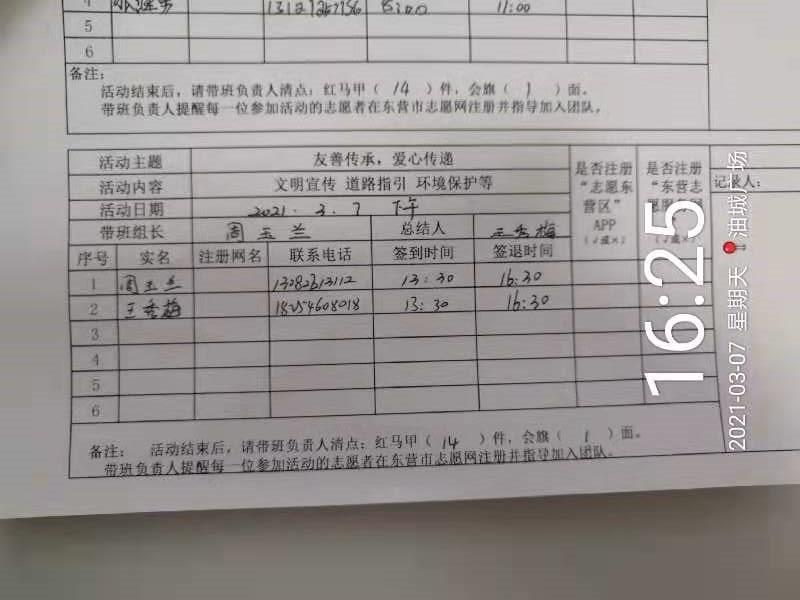 4 13127267756 8:00 11:00
5
6
备注:
活动结束后,请带班负责人清点:红马甲( 14 )件,会旗( 1 )面。
带班负责人提醒每一位参加活动的志愿者在东营市志愿网注册并指导加入团队。
活动主题 友善传承,爱心传递
活动内容 文明宣传 道路指引 环境保护等
活动日期 2021.3.7 下午
带班组长 周玉兰 总结人 王秀梅
是否注册
“志愿东
营区”
APP
(√或×)
是否注册
“东营志
(√或×)
记录人:
序号 实名 注册网名 联系电话 签到时间 签退时间
1 周玉兰 13282313112 13:30 16:30
2 王秀梅 18254608018 13:30 16:30
3
4
5
6
备注: 活动结束后,请带班负责人清点:红马甲( 14 )件,会旗( 1 )面。
带班负责人提醒每一位参加活动的志愿者在东营市志愿网注册并指导加入团队。
16:25
2021-03-07 星期天 油城广场